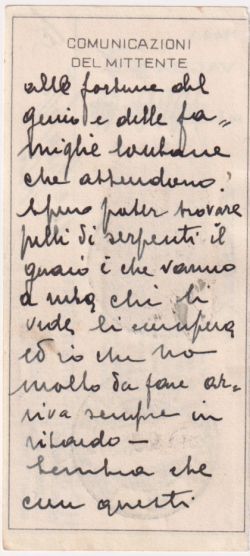 COMUNICAZIONI
DEL MITTENTE
alle fortune del
genio e delle fa-
miglie lontane
che attendono.
Spero poter trovare
pelli di serpenti il
guaio è che vanno
a ruba, chi li
vede li compera
ed io che ho
molto da fare ar-
riva sempre in
ritardo —
Sembra che
con questi